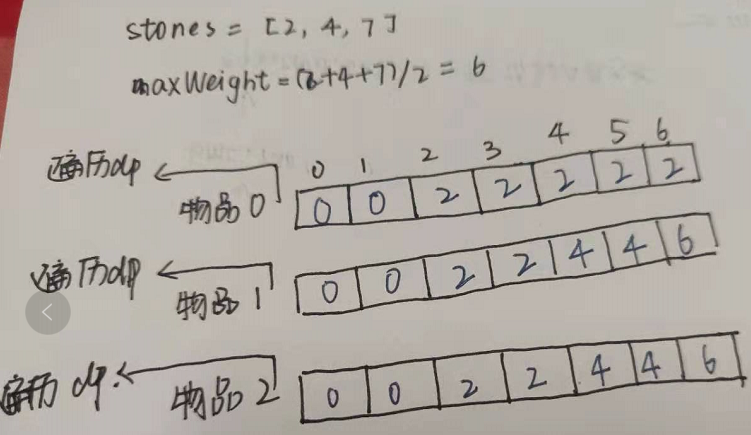 stones = [2, 4, 7]
maxWeight = (2+4+7)/2 = 6
0 1 2 3 4 5 6
遍历dp
物品0 0 0 2 2 2 2 2
遍历dp
物品1 0 0 2 2 4 4 6
遍历dp.
物品2 0 0 2 2 4 4 6